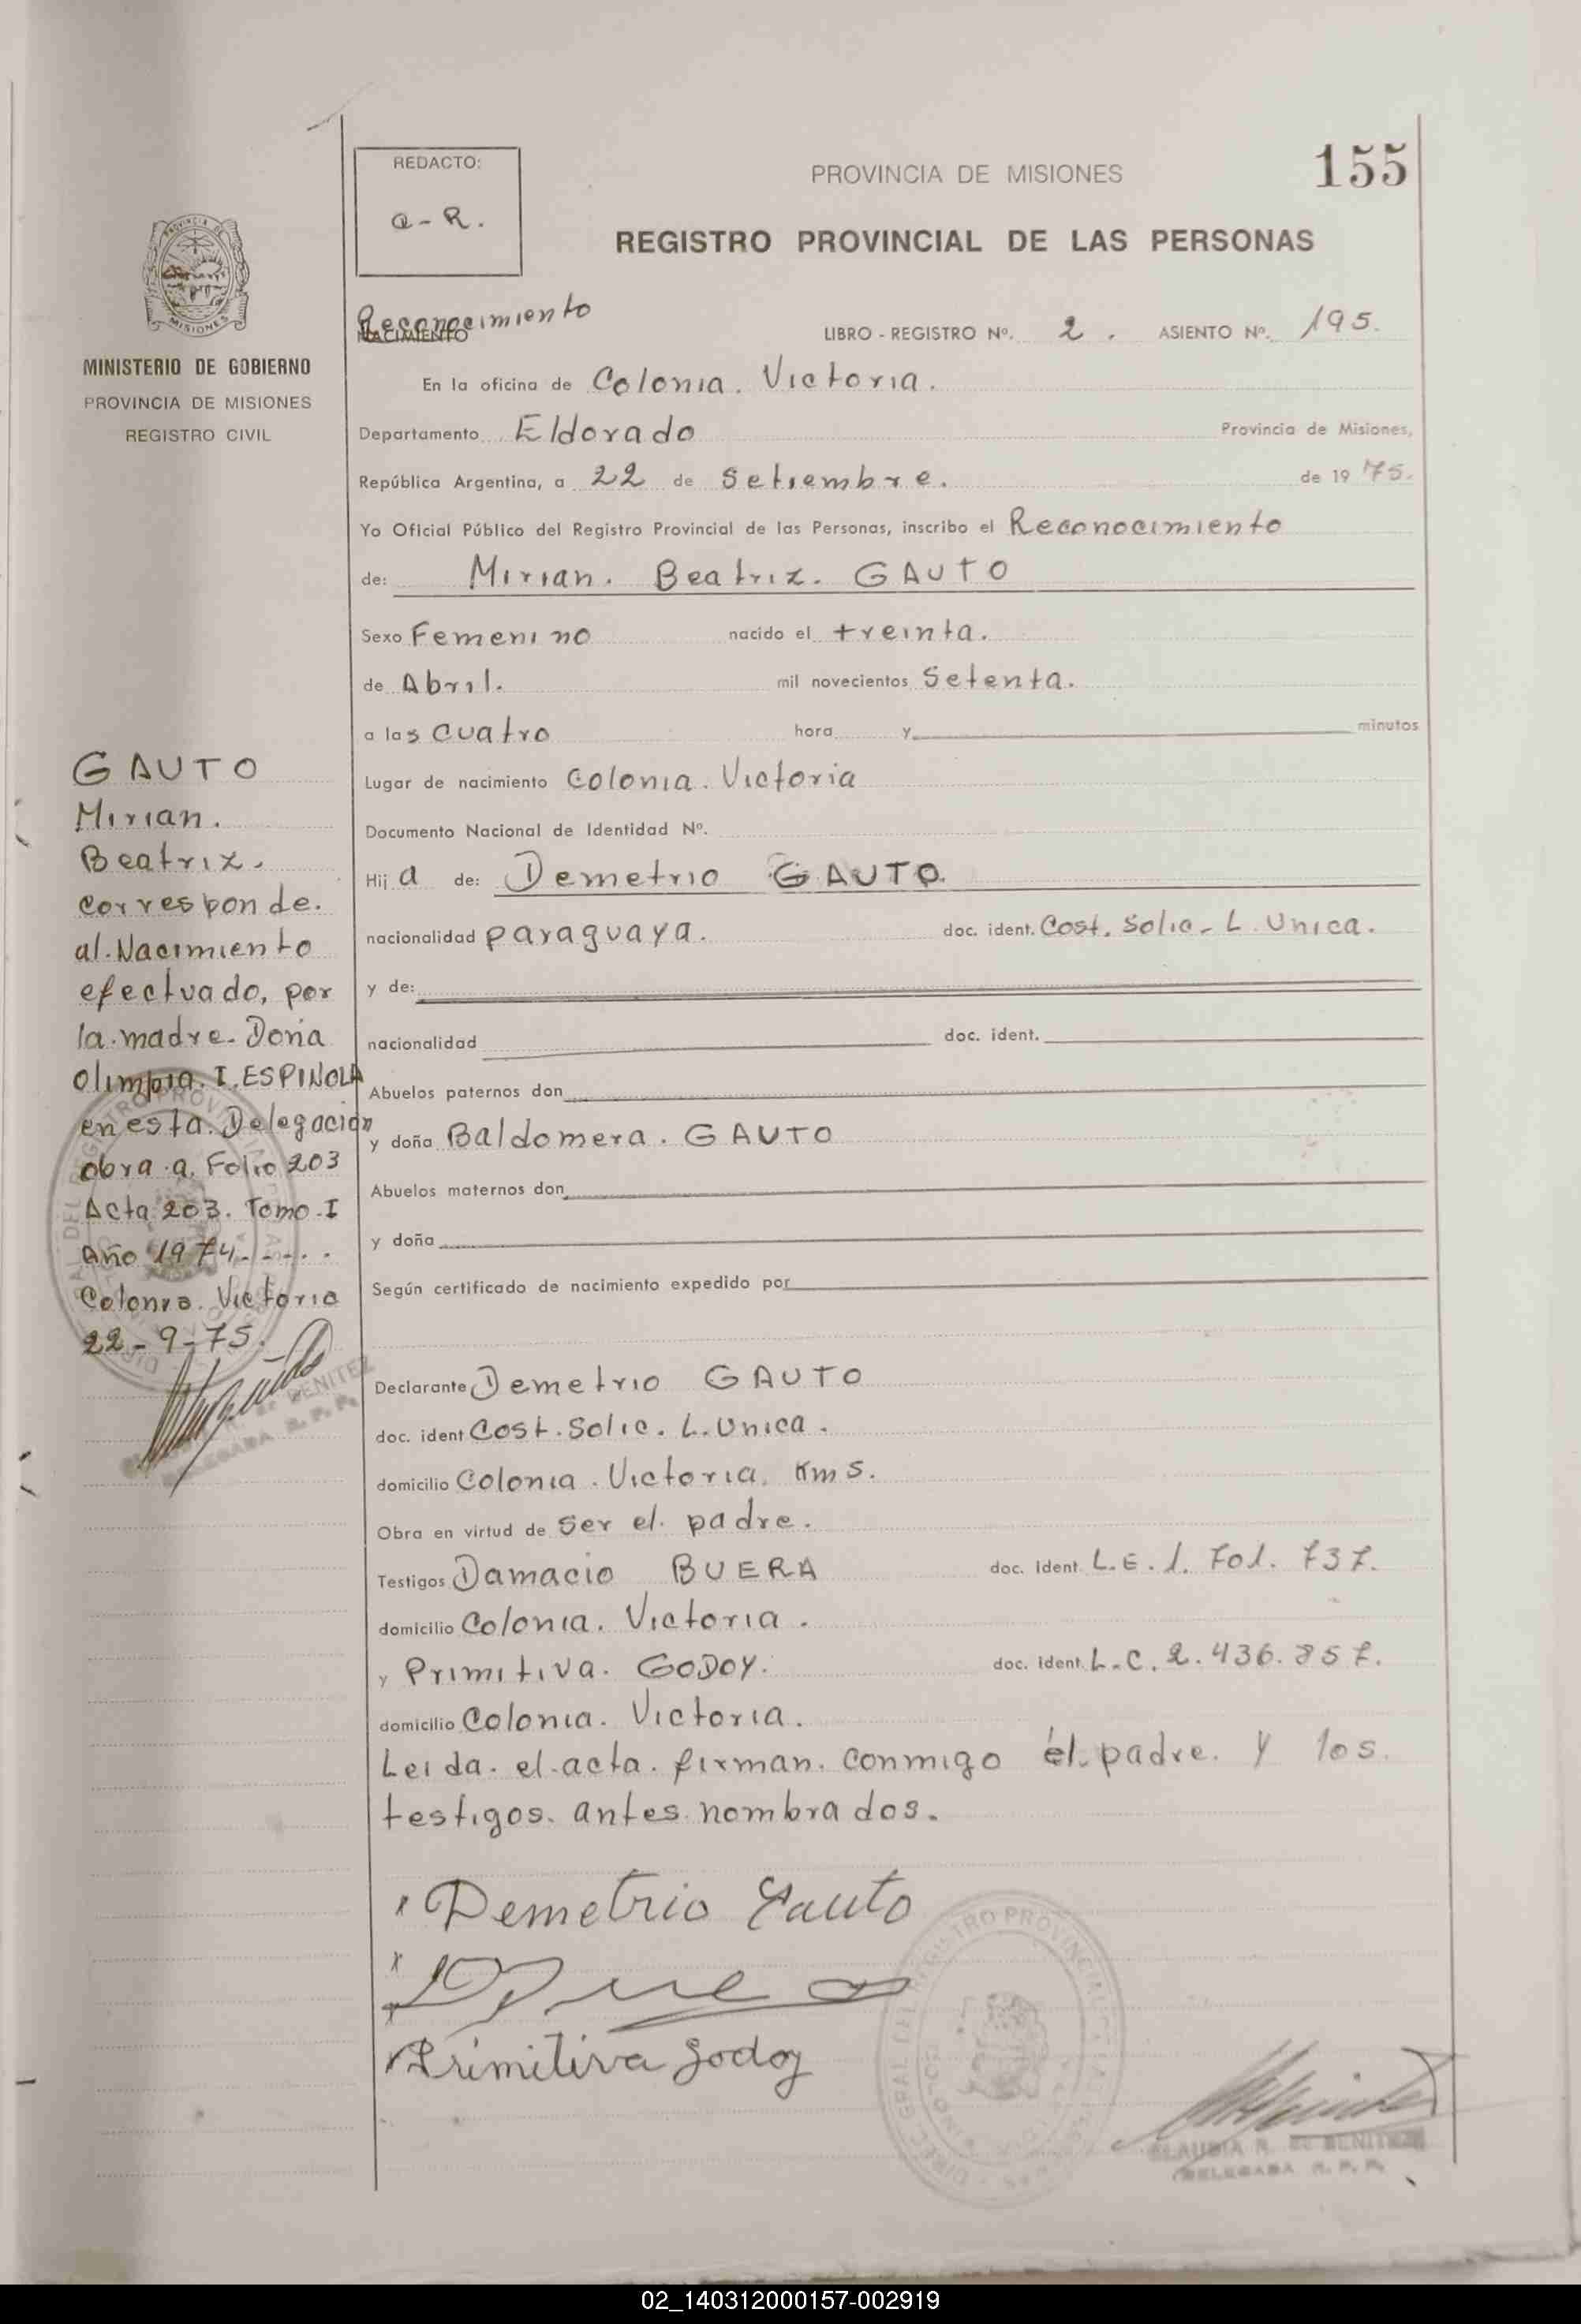 REDACTO:
Q-R.
PROVINCIA DE MISIONES
155
REGISTRO PROVINCIAL DE LAS PERSONAS
PROVINCIA DE
MISIONES
MINISTERIO DE GOBIERNO
PROVINCIA DE MISIONES
REGISTRO CIVIL
Reconocimiento
NACIMIENTO
LIBRO - REGISTRO Nº. 2. ASIENTO Nº. 195.
En la oficina de Colonia. Victoria.
Departamento Eldorado Provincia de Misiones,
República Argentina, a 22 de Setiembre. de 19 75.
Yo Oficial Público del Registro Provincial de las Personas, inscribo el Reconocimiento
de: Mirian. Beatriz. GAUTO
Sexo Femenino nacido el treinta.
de Abril. mil novecientos Setenta.
a las cuatro hora y minutos
Lugar de nacimiento Colonia. Victoria
Documento Nacional de Identidad Nº.
Hij a de: Demetrio GAUTO.
nacionalidad paraguaya. doc. ident. Cost. Solic- L. Unica.
y de:
nacionalidad doc. ident.
Abuelos paternos don
y doña Baldomera. GAUTO
Abuelos maternos don
y doña
Según certificado de nacimiento expedido por
GAUTO
Mirian.
Beatriz.
corresponde.
al. Nacimiento
efectuado, por
la. madre. Doña
Olimpia. I. ESPINOLA
en esta. Delegación
obra. a. Folio 203
Acta 203. Tomo. I
Año 1974.-.-.
Colonia. Victoria
22-9-75.
DE BENITEZ
DELEGADA R. P. P.
Declarante Demetrio GAUTO
doc. ident Cost. Solic. L. Unica.
domicilio Colonia. Victoria. Km 5.
Obra en virtud de Ser el. padre.
Testigos Damacio BUERA doc. ident L.E. 1. 701. 737.
domicilio Colonia. Victoria.
y Primitiva. GODOY. doc. ident. L.C. 2.436.857.
domicilio Colonia. Victoria.
Leida. el. acta. firman. conmigo el. padre. y los.
testigos. antes. nombrados.
Demetrio Gauto
Primitiva Godoy
CLAUDIA R. DE BENITEZ
DELEGADA R. P. P.
02_140312000157-002919